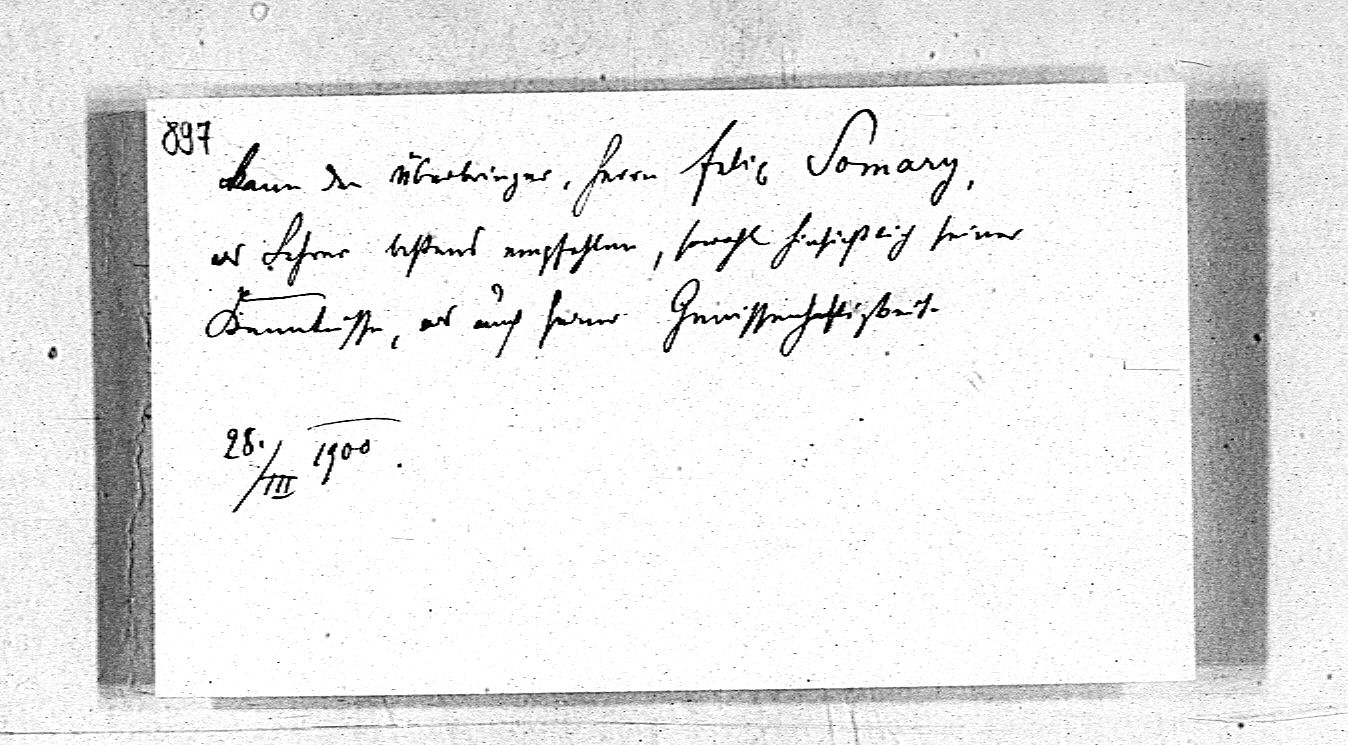 897
kann den Überbringer, Herrn Felix Somary,
als Lehrer bestens empfehlen, sowohl hinsichtlich seiner
Kenntnisse, als auch seiner Gewissenhaftigkeit.
28./III 1900.